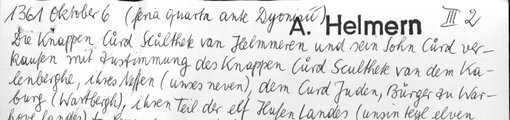 1361 Oktober 6 (feria quarta ante Dyonisii) III 2
A. Helmern
Die Knappen Cůrd Scůlthete van Helmmeren und sein Sohn Cůrd ver-
kaufen mit Zustimmung des Knappen Cůrd Scůltheten van dem Ka-
lenberghe, ihres Neffen (unses neven), dem Curd Juden, Bürger zu War-
burg (Wartbergh), ihren Teil der elf Hufen Landes (unsin teyl elven
hove landes)